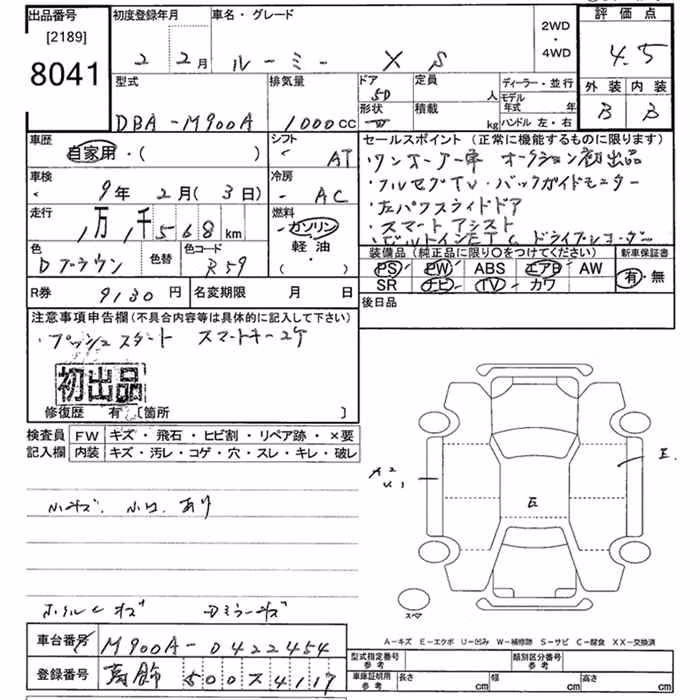 出品番号 初度登録年月 車名・グレード 評価点
[2189] 2 2月 ルーミー X S 2WD・4WD 4.5
8041 型式 排気量 ドア 定員 ディーラー・並行 外装 内装
5D 人 モデル年式 年
DBA-M900A 1000cc 形状 積載 kg ハンドル 左・右 B B
車歴 シフト セールスポイント (正常に機能するものに限ります)
自家用・( ) AT ・ワンオーナー車 オークション初出品
車検 冷房 ・フルセグTV・バックガイドモニター
9年2月(3日) AC ・左パワスライドドア
走行 燃料 ・スマートアシスト
1万1千568km ガソリン ・ビルトインETC ドライブレコーダー
軽油・
色 色替 色コード ( ) 装備品 (純正品に限り〇をつけてください) 新車保証書
Dブラウン R59 PS PW ABS エアB AW 有・無
R券 9130円 名変期限 月 日 SR ナビ TV カワ
後日品
注意事項申告欄(不具合内容等は具体的に記入して下さい)
・プッシュスタート スマートキー2ケ
初出品
修復歴 有 [箇所 ]
検査員 FW キズ・飛石・ヒビ割・リペア跡・×要
記入欄 内装 キズ・汚レ・コゲ・穴・スレ・キレ・破レ
A2 E
U1 E
小キズ 小凹 あり
スペア
ホイルキズ Dミラーキズ
A-キズ E-エクボ U-凹み W-補修跡 S-サビ C-腐食 XX-交換済
車台番号 M900A-0422454 型式指定番号 参考 類別区分番号 参考
登録番号 葛飾 500 ス 4117 車庫証明用 参考 長さ cm 幅 cm 高さ cm